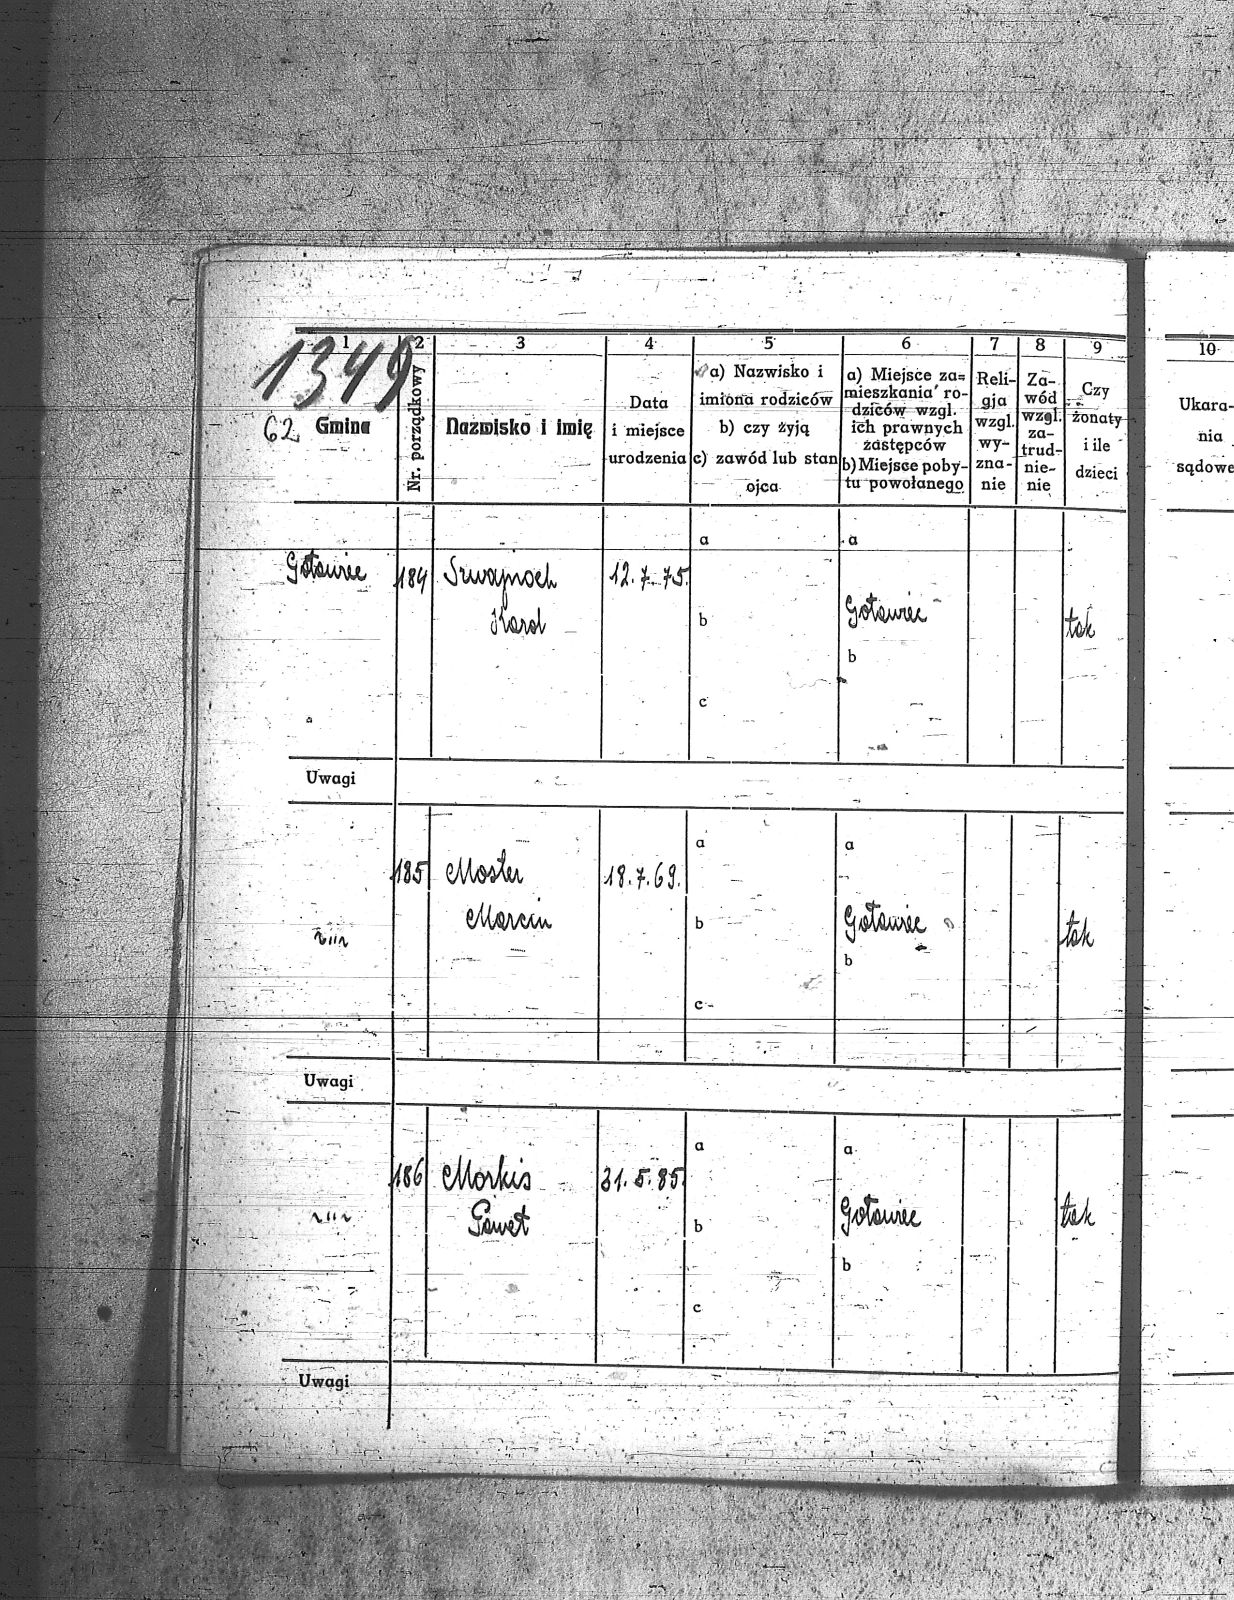 1349
62
1 2 3 4 5 6 7 8 9 10
Gmina
Nr. porządkowy
Nazwisko i imię
Data
i miejsce
urodzenia
a) Nazwisko i
imiona rodziców
b) czy żyją
c) zawód lub stan
ojca
a) Miejsce za=
mieszkania ro-
dziców wzgl.
ich prawnych
zastępców
b) Miejsce poby-
tu powołanego
Reli-
gja
wzgl.
wy-
zna-
nie
Za-
wód
wzgl.
za-
trud-
nie-
nie
Czy
żonaty
i ile
dzieci
Ukara-
nia
sądowe
a a
Gołowiec 184 Szwajnoch 12.7.75.
Karol b Gołowiec tak
b
c
Uwagi
a a
185 Mosler 18.7.69.
Marcin b Gołowiec tak
b
c
Uwagi
a a
186 Morkis 31.5.85.
Paweł b Gołowiec tak
b
c
Uwagi